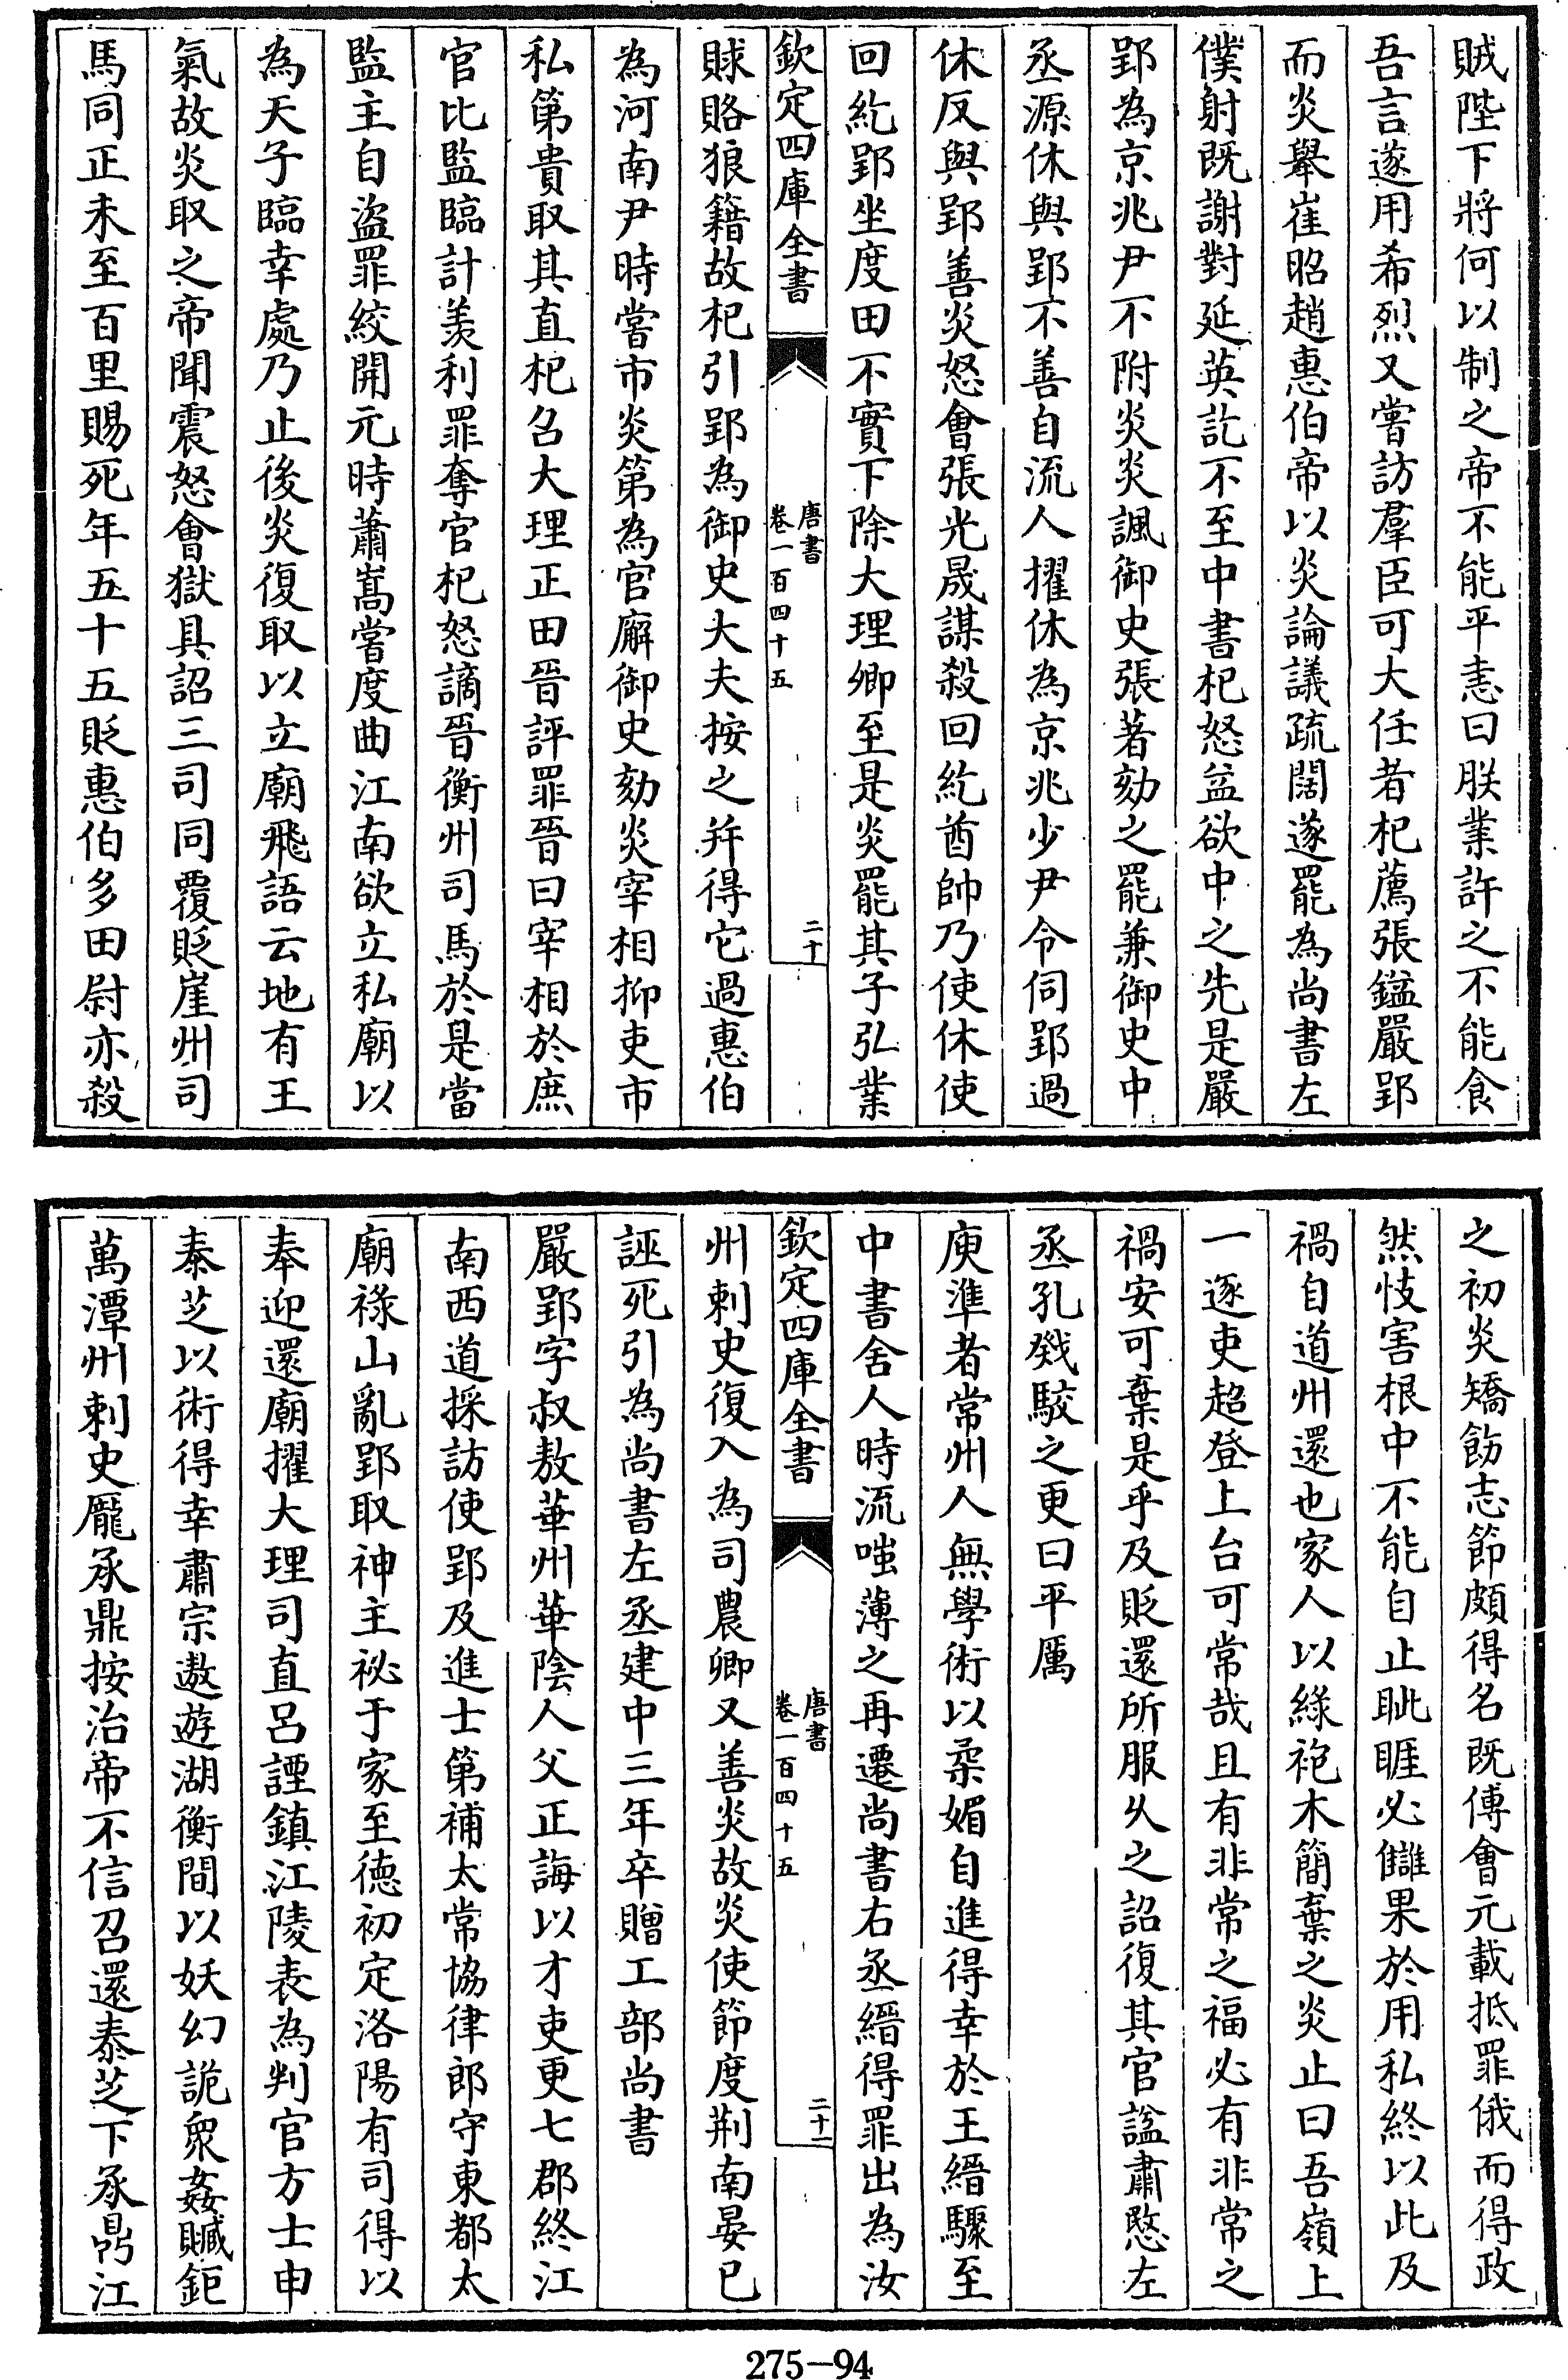 賊陛下將何以制之帝不能平恚曰朕業許之不能食
吾言遂用希烈又嘗訪羣臣可大任者杞薦張鎰嚴郢
而炎舉崔昭趙惠伯帝以炎論議疏闊遂罷為尚書左
僕射既謝對延英訖不至中書杞怒益欲中之先是嚴
郢為京兆尹不附炎炎諷御史張著劾之罷兼御史中
丞源休與郢不善自流人擢休為京兆少尹令伺郢過
休反與郢善炎怒會張光晟謀殺回紇酋帥乃使休使
回紇郢坐度田不實下除大理卿至是炎罷其子弘業
欽定四庫全書
唐書
卷一百四十五
二十
賕賂狼籍故杞引郢為御史大夫按之并得它過惠伯
為河南尹時嘗市炎第為官廨御史劾炎宰相抑吏市
私第貴取其直杞召大理正田晉評罪晉曰宰相於庶
官比監臨計羨利罪奪官杞怒謫晉衡州司馬於是當
監主自盜罪絞開元時蕭嵩嘗度曲江南欲立私廟以
為天子臨幸處乃止後炎復取以立廟飛語云地有王
氣故炎取之帝聞震怒會獄具詔三司同覆貶崖州司
馬同正未至百里賜死年五十五貶惠伯多田尉亦殺
之初炎矯飭志節頗得名既傅會元載抵罪俄而得政
然忮害根中不能自止眦睚必讎果於用私終以此及
禍自道州還也家人以綠袍木簡棄之炎止曰吾嶺上
一逐吏超登上台可常哉且有非常之福必有非常之
禍安可棄是乎及貶還所服久之詔復其官諡肅愍左
丞孔戣駮之更曰平厲
庾準者常州人無學術以柔媚自進得幸於王縉驟至
中書舍人時流嗤薄之再遷尚書右丞縉得罪出為汝
欽定四庫全書
唐書
卷一百四十五
二十一
州刺史復入為司農卿又善炎故炎使節度荆南晏已
誣死引為尚書左丞建中三年卒贈工部尚書
嚴郢字叔敖華州華陰人父正誨以才吏更七郡終江
南西道採訪使郢及進士第補太常協律郎守東都太
廟祿山亂郢取神主祕于家至德初定洛陽有司得以
奉迎還廟擢大理司直呂諲鎮江陵表為判官方士申
泰芝以術得幸肅宗遨遊湖衡間以妖幻詭衆姦贓鉅
萬潭州刺史龎承鼎按治帝不信召還泰芝下承鼎江
275-94